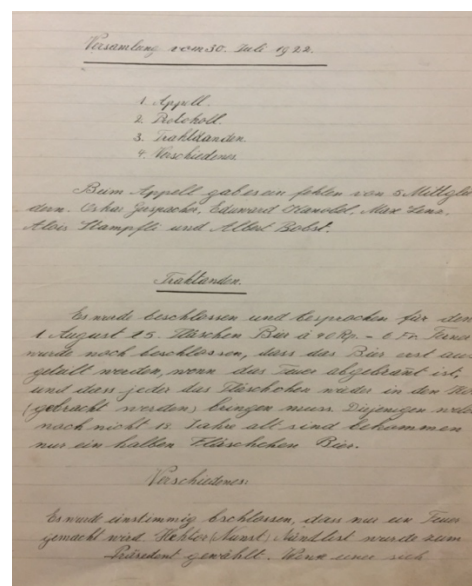 Versamlung vom 30. Juli 1922.
1. Appell.
2. Protokoll.
3. Traktanden.
4. Verschiedenes
Beim Appell gab es ein fehlen von 5 Mitglie
dern. Oskar Eduward Max Lenz,
Alois Stampfli und Albert Bobst.
Traktanden.
Es wurde beschlossen und besprochen für den
1 August 15. Fläschen Bier à 40 Rp. = 6 Fr. Ferner
wurde noch beschlossen, dass das Bier erst aus
getalt werden, wenn das Feuer abgebrant ist,
und dass jeder das Fläschchen wieder in den
(gebracht werden) bringen muss. Diejenigen
noch nicht 18 Jahre alt sind bekommen
nur ein halben Fläschchen Bier.
Verschiedenes
Es wurde einstimmig beschlossen, das nur ein Feuer
gemacht wird. wurde zum
Präsedent gewählt. Wenn einer sich